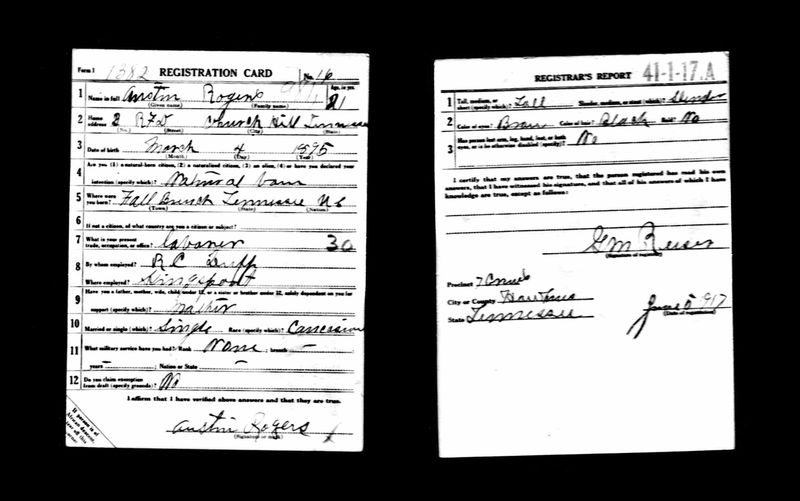 Form 1 1382 REGISTRATION CARD No. 16
1 Name in full Austin Rogers Age, in yrs. 21
(Given name) (Family name)
2 Home address 2 RFD Church Hill Tennessee
(No.) (Street) (City) (State)
3 Date of birth March 4 1895
(Month) (Day) (Year)
4 Are you (1) a natural-born citizen, (2) a naturalized citizen, (3) an alien, (4) or have you declared your
intention (specify which)? Natural born
5 Where were you born? Fall Branch Tennessee US
(Town) (State) (Nation)
6 If not a citizen, of what country are you a citizen or subject?
7 What is your present trade, occupation, or office? laborer 30
8 By whom employed? R C
Where employed? Kingsport
9 Have you a father, mother, wife, child under 12, or a sister or brother under 12, solely dependent on you for
support (specify which)? Mother
10 Married or single (which)? Single Race (specify which)? Caucasian
11 What military service have you had? Rank None ; branch —
years — ; Nation or State —
12 Do you claim exemption from draft (specify grounds)? No
I affirm that I have verified above answers and that they are true.
Austin Rogers
(Signature or mark)
If person is of African descent, tear off this corner
REGISTRAR'S REPORT 41-1-17.A
1 Tall, medium, or short (specify which)? Tall Slender, medium, or stout (which)? Slender
2 Color of eyes? Brown Color of hair? Black Bald? No
3 Has person lost arm, leg, hand, foot, or both eyes, or is he otherwise disabled (specify)? No
I certify that my answers are true, that the person registered has read his own
answers, that I have witnessed his signature, and that all of his answers of which I have
knowledge are true, except as follows:
G M
(Signature of registrar)
Precinct 7
City or County Hawkins
State Tennessee June 5 1917
(Date of registration)